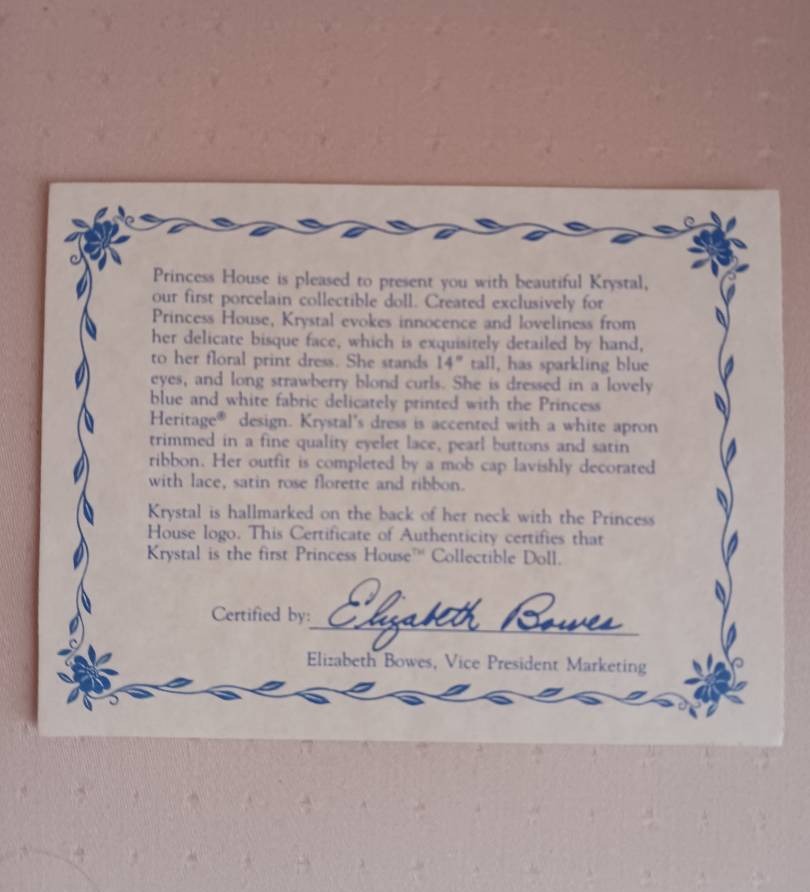 Princess House is pleased to present you with beautiful Krystal,
our first porcelain collectible doll. Created exclusively for
Princess House, Krystal evokes innocence and loveliness from
her delicate bisque face, which is exquisitely detailed by hand,
to her floral print dress. She stands 14" tall, has sparkling blue
eyes, and long strawberry blond curls. She is dressed in a lovely
blue and white fabric delicately printed with the Princess
Heritage® design. Krystal's dress is accented with a white apron
trimmed in a fine quality eyelet lace, pearl buttons and satin
ribbon. Her outfit is completed by a mob cap lavishly decorated
with lace, satin rose florette and ribbon.
Krystal is hallmarked on the back of her neck with the Princess
House logo. This Certificate of Authenticity certifies that
Krystal is the first Princess House™ Collectible Doll.
Certified by: Elizabeth Bowes
Elizabeth Bowes, Vice President Marketing